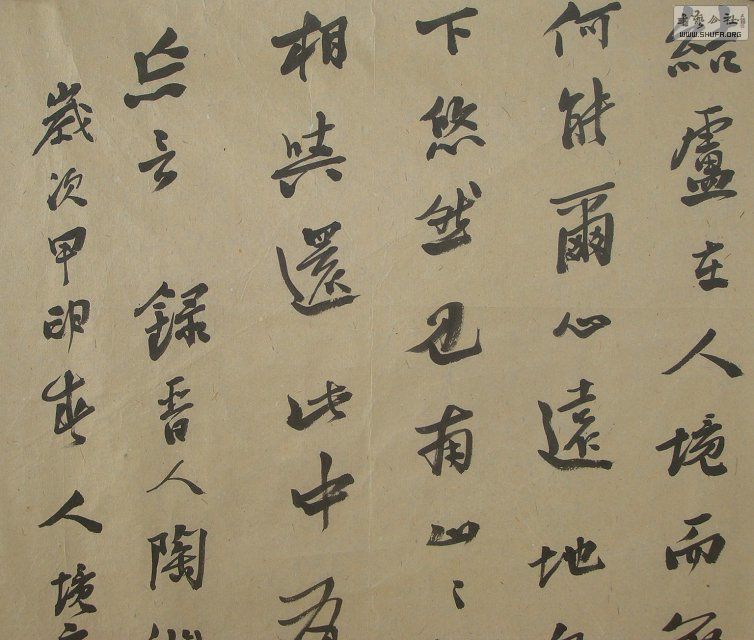 書藝公社
WWW.SHUFA.ORG
結廬在人境而
何能爾心遠地
下悠然見南山〻
相與還此中有
忘言 錄晉人陶
歲次甲春人境